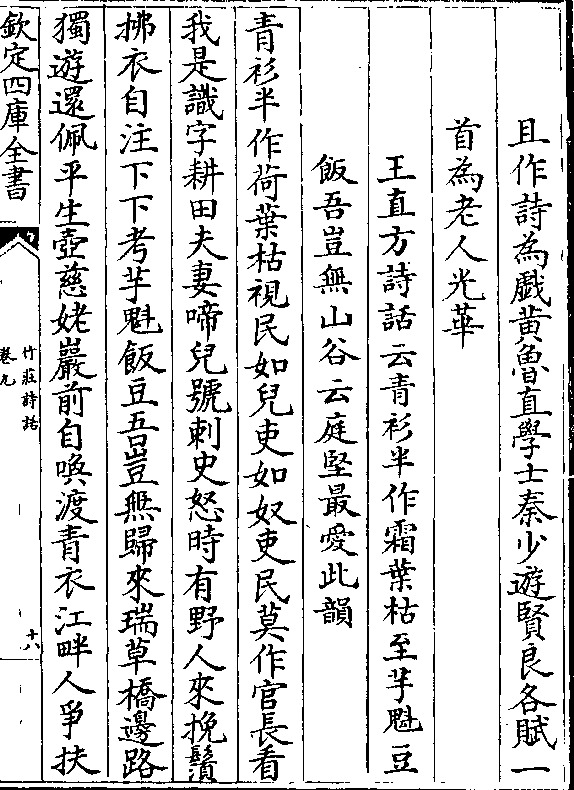 且作詩為戲黄魯直學士秦少遊賢良各賦一
首為老人光華
王直方詩話云青衫半作霜葉枯至芋魁豆
飯吾豈無山谷云庭堅最愛此韻
青衫半作荷葉枯視民如兒吏如奴吏民莫作官長看
我是識字耕田夫妻啼兒號刺史怒時有野人來挽鬚
拂衣自注下下考芋魁飯豆吾豈無歸來瑞草橋邊路
獨遊還佩平生壺慈姥巖前自喚渡青衣江畔人爭扶
欽定四庫全書
竹莊詩話
卷九
十八